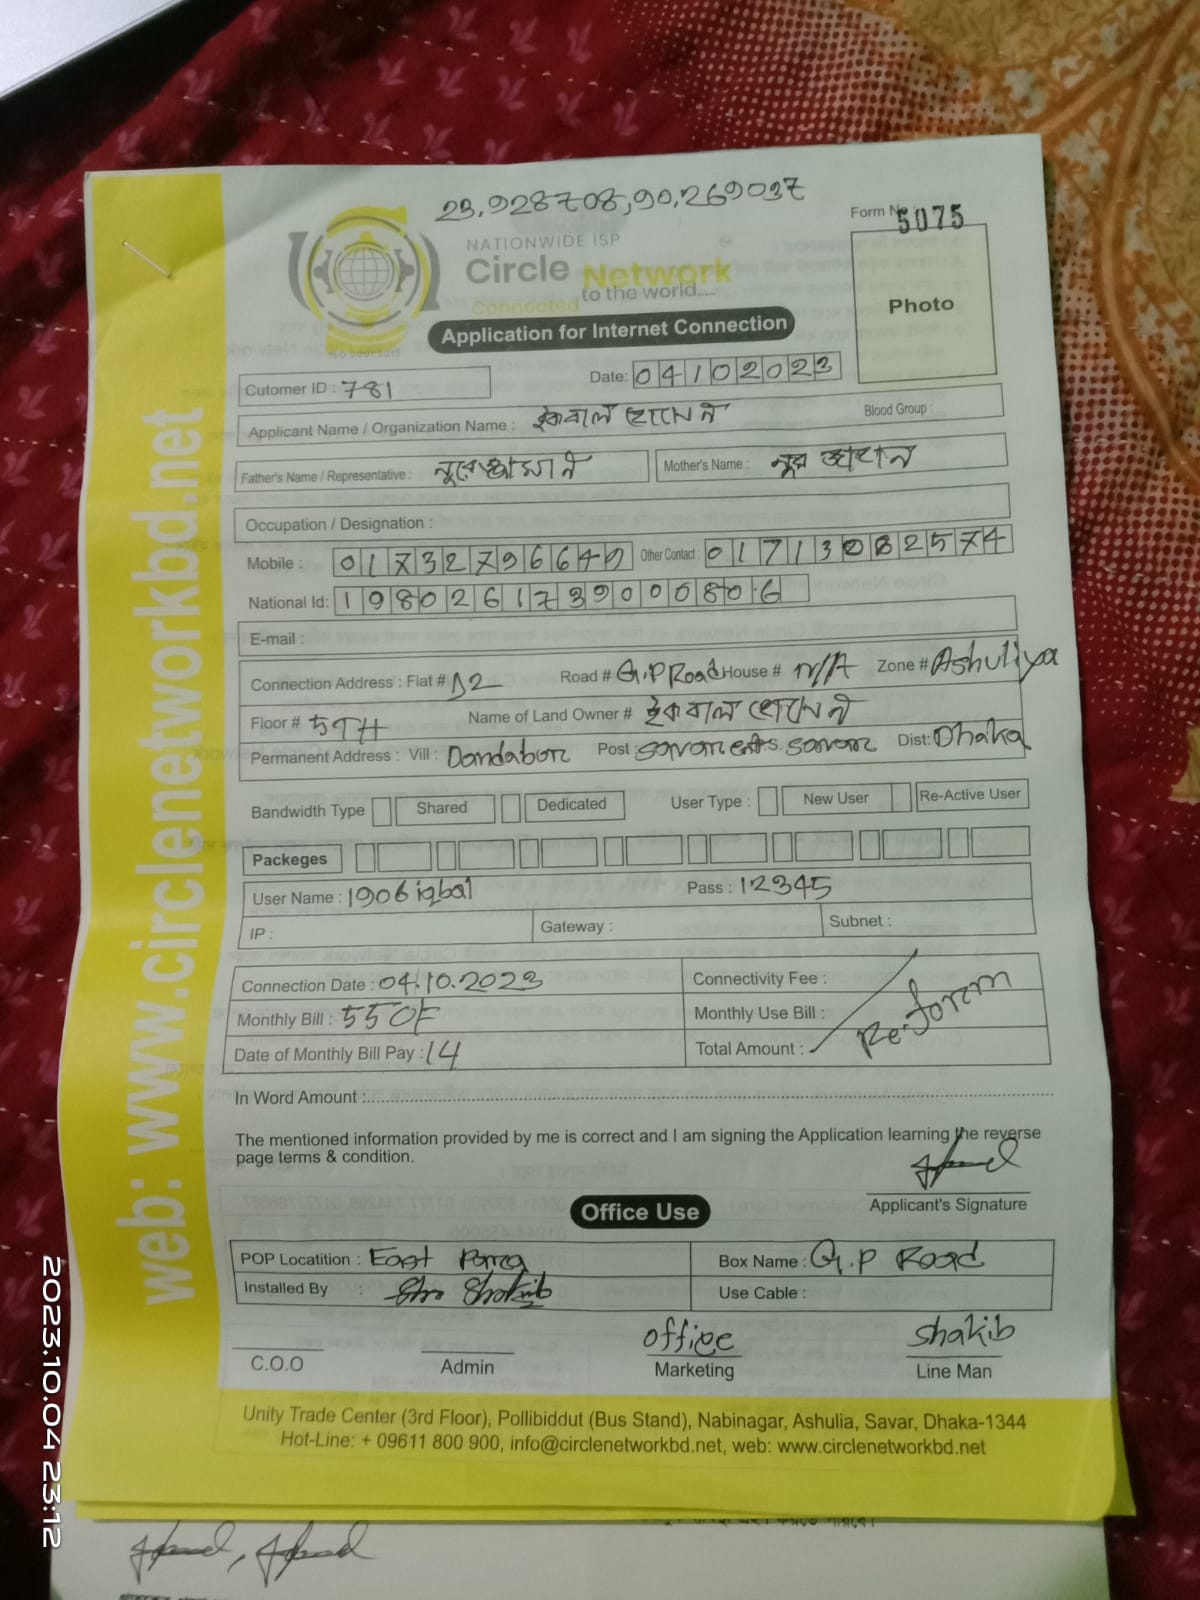 23.928708,90.269037
Form No : 5075
NATIONWIDE ISP
Circle Network
Connected to the world....
ISO 9001:2015
Photo
Application for Internet Connection
Cutomer ID : 781
Date: 04102023
Applicant Name / Organization Name : ইকবাল হোসেন
Blood Group :
Father's Name / Representative : নুরেজ্জামান
Mother's Name : নুর জাহান
Occupation / Designation :
Mobile : 01732796640 Other Contact : 01713082574
National Id: 19802617390000806
E-mail :
Connection Address : Flat # D2 Road # G.P Road House # N/A Zone # Ashuliya
Floor # 5TH Name of Land Owner # ইকবাল হোসেন
Permanent Address : Vill : Dandabor Post : Dist: Dhaka
Bandwidth Type Shared Dedicated User Type : New User Re-Active User
Packeges
User Name : 1906iqbal Pass : 12345
IP : Gateway : Subnet :
Connection Date : 04.10.2023 Connectivity Fee :
Monthly Bill : 550 Monthly Use Bill :
Date of Monthly Bill Pay : 14 Total Amount : Re-forem
In Word Amount :
The mentioned information provided by me is correct and I am signing the Application learning the reverse
page terms & condition.
Applicant's Signature
Office Use
POP Locatition : East Para Box Name : G.P Road
Installed By : Shakib Use Cable :
office shakib
C.O.O Admin Marketing Line Man
Unity Trade Center (3rd Floor), Pollibiddut (Bus Stand), Nabinagar, Ashulia, Savar, Dhaka-1344
Hot-Line: + 09611 800 900, info@circlenetworkbd.net, web: www.circlenetworkbd.net
web: www.circlenetworkbd.net
2023.10.04 23:12